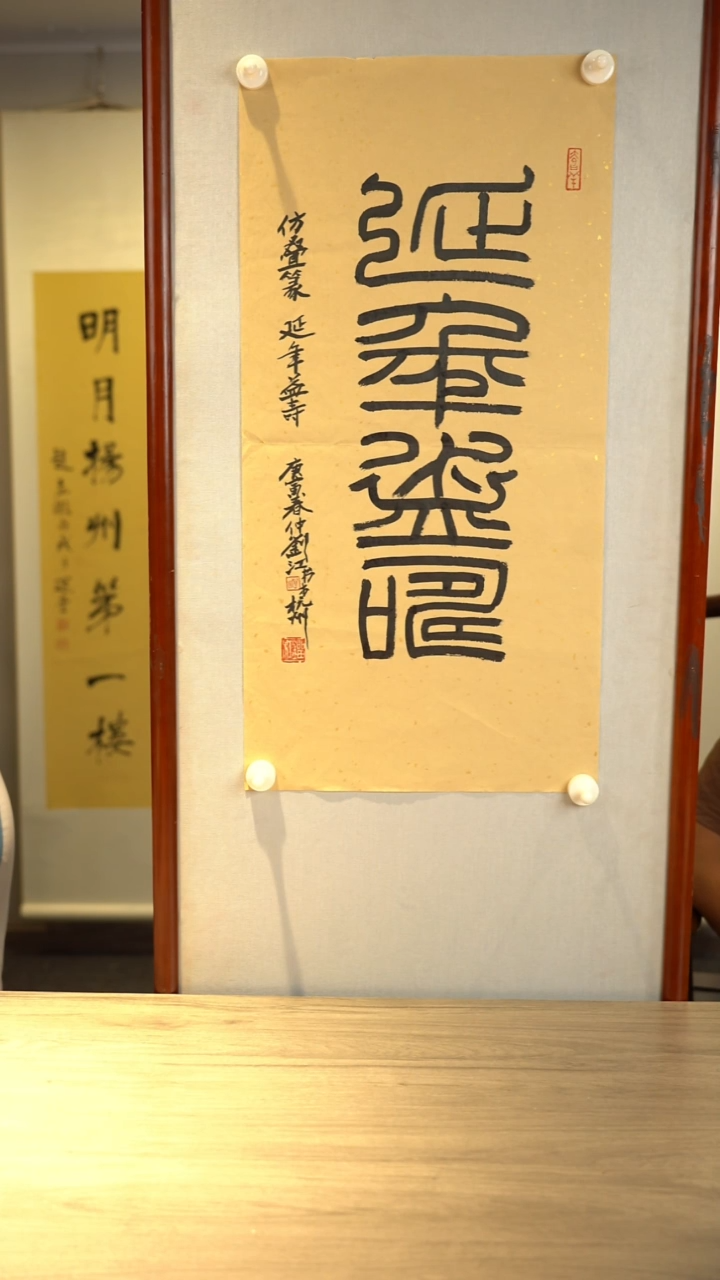 延年益寿
仿叠篆 延年益寿 庚寅春仲劉江书于杭州
明月揚州第一楼